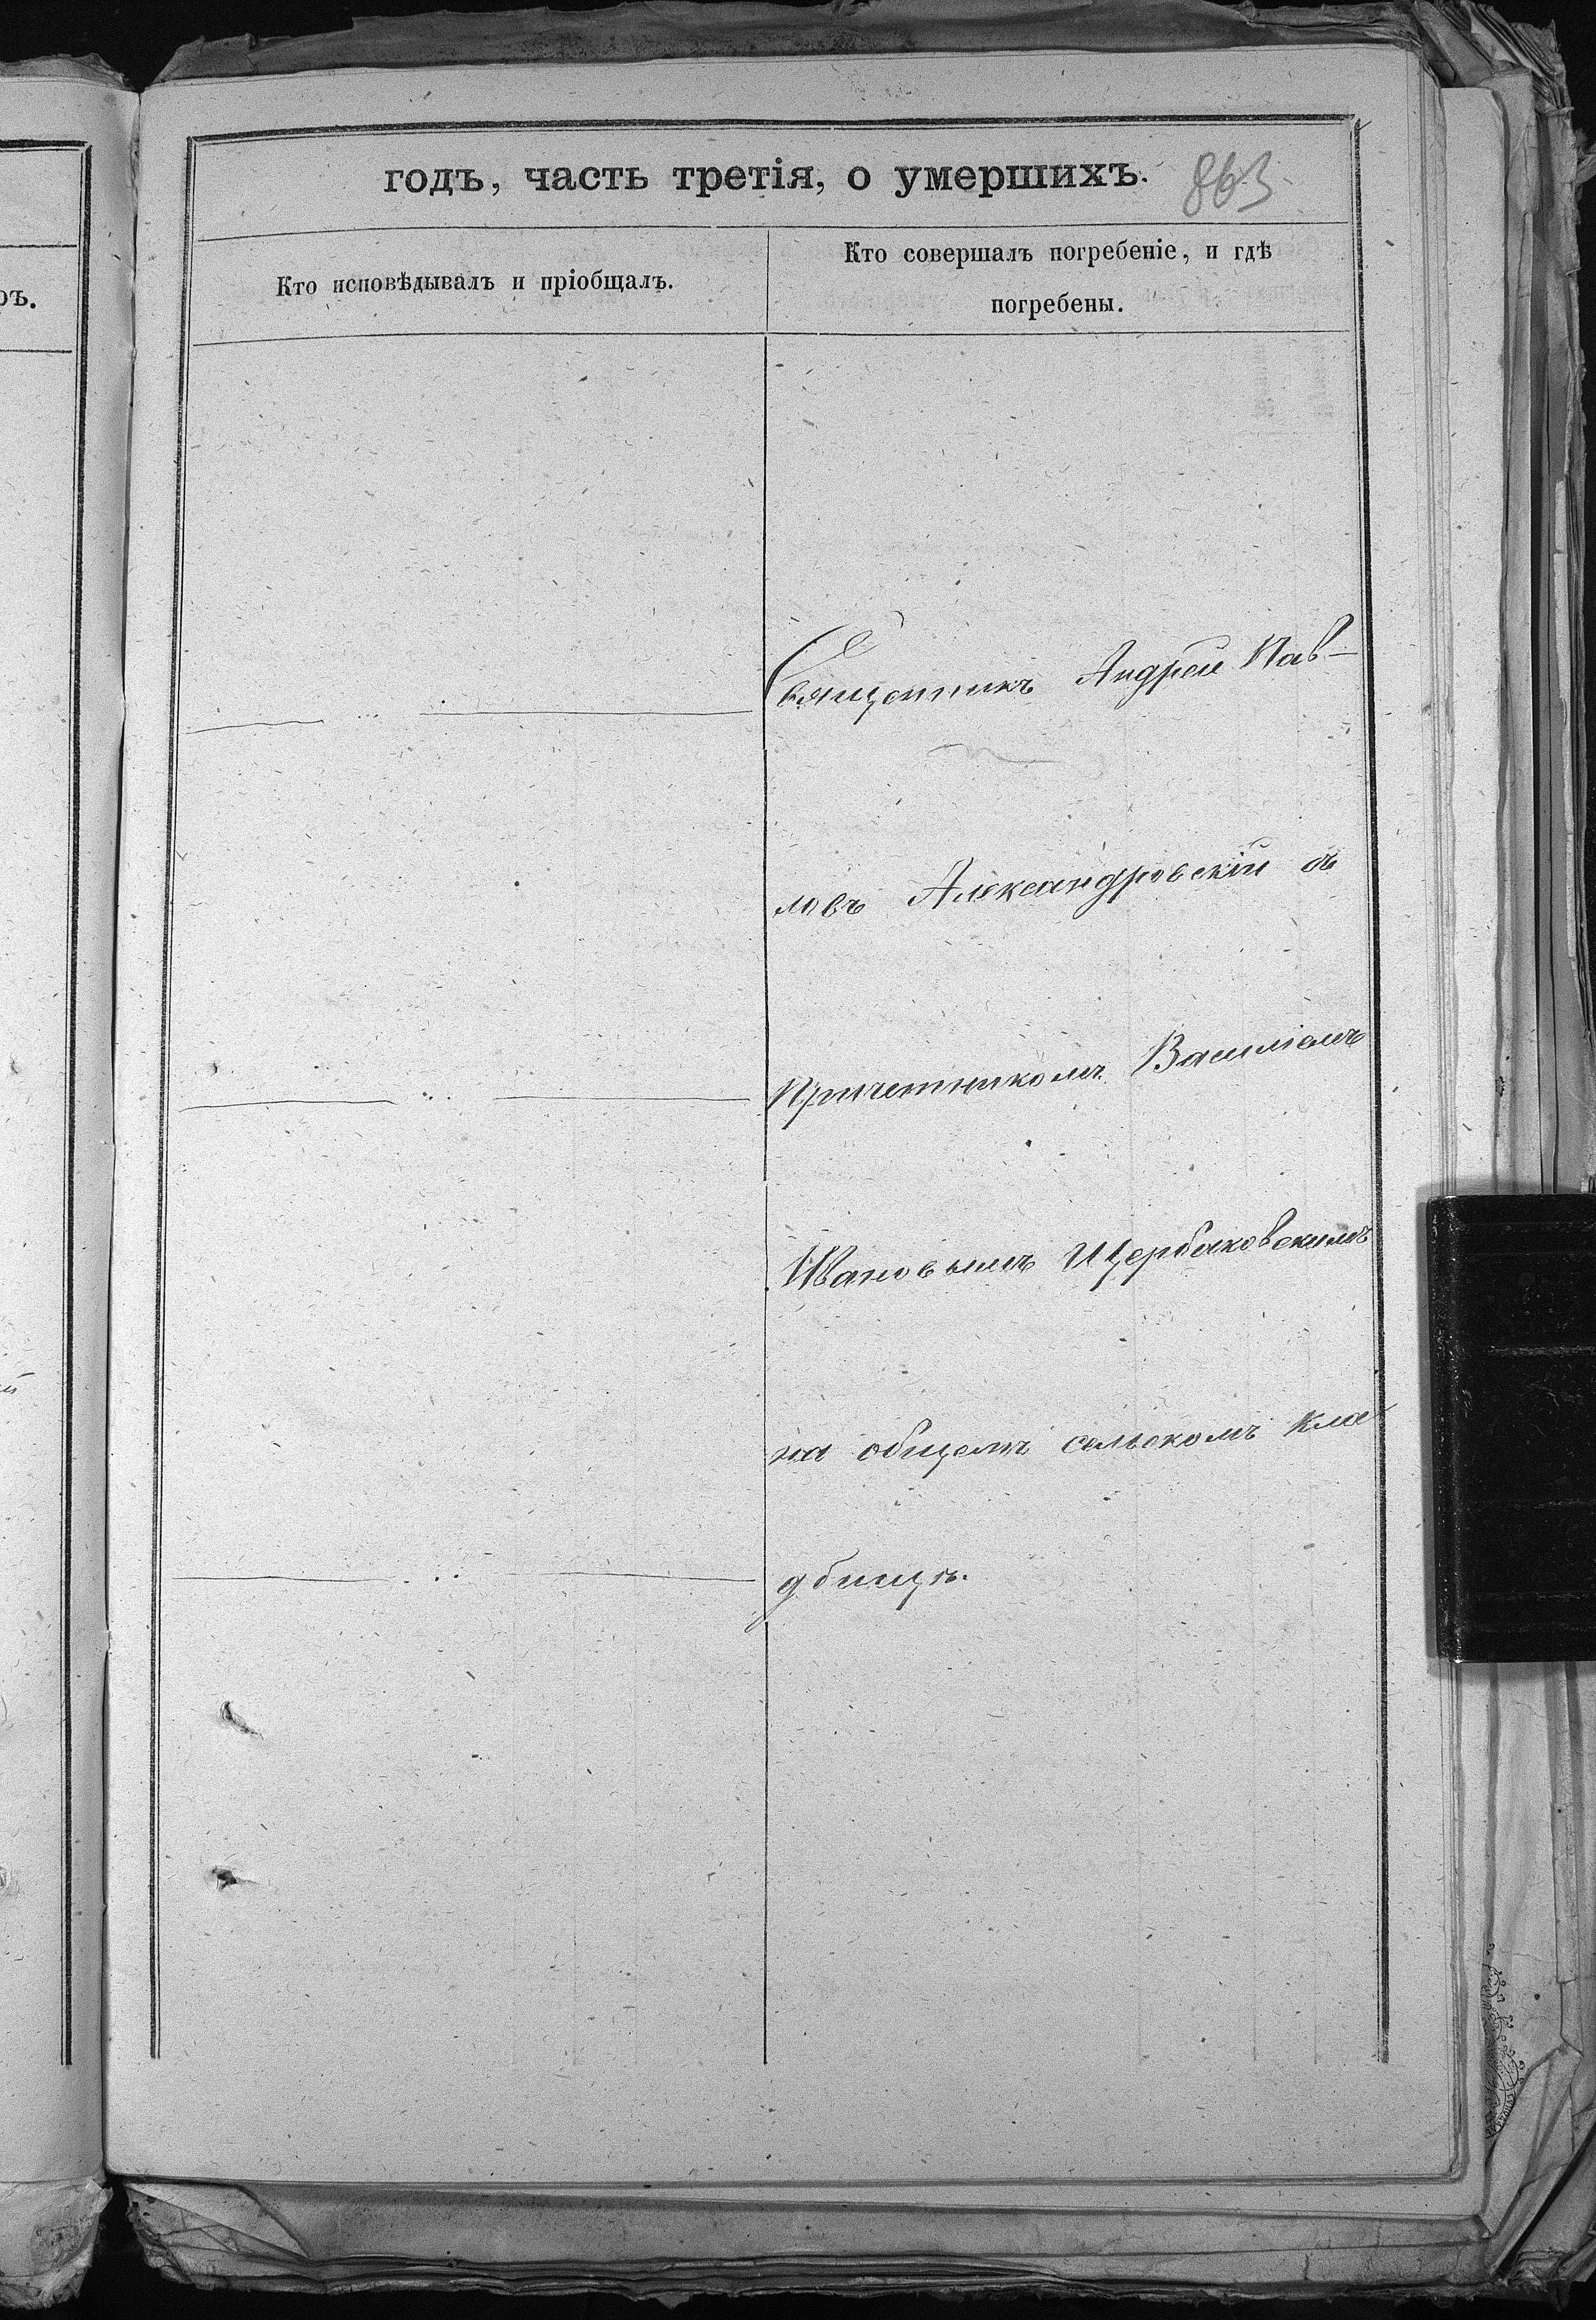 годъ, часть третія, о умершихъ.
863
Кто исповѣдывалъ и пріобщалъ.
Кто совершалъ погребеніе, и гдѣ
погребены.
Священникъ Андрей Пав-
ловъ Александровскій съ
Причетникомъ Василіемъ
Ивановымъ Щербаковскимъ
на общемъ сельскомъ кла
дбищѣ.
ръ.
й